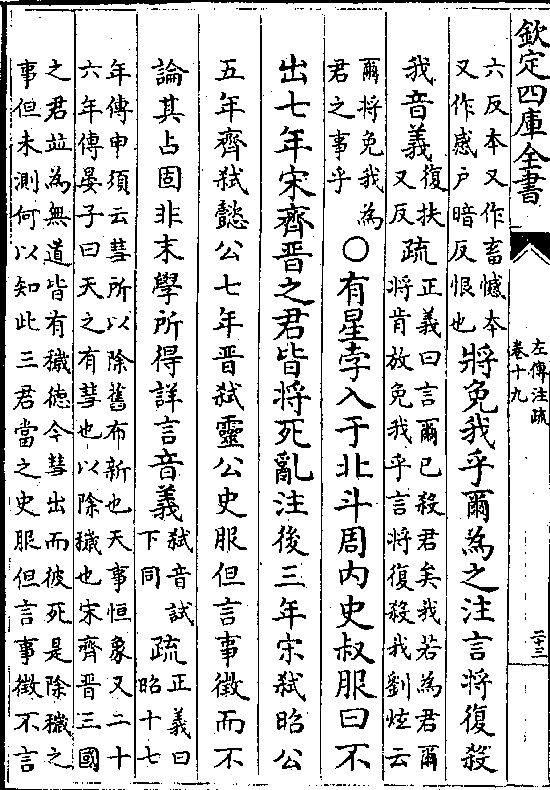 欽定四庫全書
左傳注疏
卷十九
二十三
六反本又作畜憾本
又作感户暗反恨也
將免我乎爾為之注言將復殺
我音義
復扶
又反
疏
正義曰言爾已殺君矣我若為君爾
將肯放免我乎言將復殺我劉炫云
爾將免我為
君之事乎
〇有星孛入于北斗周内史叔服曰不
出七年宋齊晉之君皆將死亂注後三年宋弑昭公
五年齊弑懿公七年晉弑靈公史服但言事徵而不
論其占固非末學所得詳言音義
弑音試
下同
疏
正義曰
昭十七
年傳申須云彗所以除舊布新也天事恒象又二十
六年傳晏子曰天之有彗也以除穢也宋齊晉三國
之君並為無道皆有穢徳今彗出而彼死是除穢之
事但未測何以知此三君當之史服但言事徵不言